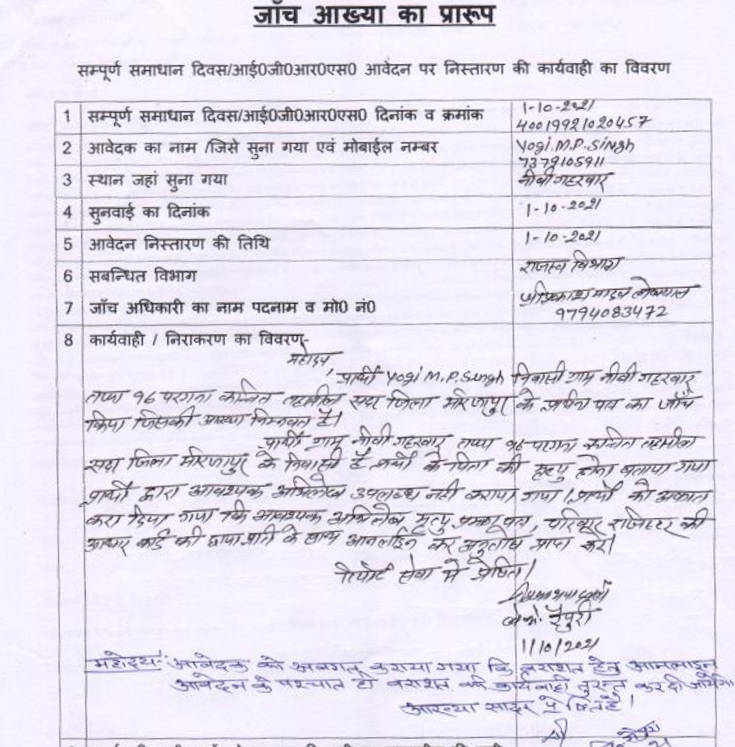 जाँच आख्या का प्रारूप
सम्पूर्ण समाधान दिवस/आई0जी0आर0एस0 आवेदन पर निस्तारण की कार्यवाही का विवरण
1 सम्पूर्ण समाधान दिवस/आई0जी0आर0एस0 दिनांक व क्रमांक 1-10-2021
40019921020457
2 आवेदक का नाम /जिसे सुना गया एवं मोबाईल नम्बर Yogi.M.P.Singh
7379105911
3 स्थान जहां सुना गया नीवी गहरवार
4 सुनवाई का दिनांक 1-10-2021
5 आवेदन निस्तारण की तिथि 1-10-2021
6 सबन्धित विभाग राजस्व विभाग
7 जाँच अधिकारी का नाम पदनाम व मो0 नं0 लेखपाल
9794083472
8 कार्यवाही / निराकरण का विवरण-
महोदय,
प्रार्थी Yogi M.P.Singh निवासी ग्राम नीवी गहरवार
तप्पा 96 परगना कन्तित तहसील सदर जिला मीरजापुर के प्रार्थना पत्र का जाँच
किया जिसकी आख्या निम्नवत है।
प्रार्थी ग्राम नीवी गहरवार तप्पा 96 परगना कन्तित तहसील
सदर जिला मीरजापुर के निवासी है प्रार्थी के पिता की मृत्यु होना बताया गया
प्रार्थी द्वारा आवश्यक अभिलेख उपलब्ध नही कराया गया। प्रार्थी को अवगत
करा दिया गया कि आवश्यक अभिलेख मृत्यु प्रमाण पत्र, परिवार रजिस्टर की
आधार कार्ड की छाया प्रति के साथ आनलाईन कर अनुतोष प्राप्त करें।
रिपोर्ट सेवा में प्रेषित।
1/10/2021
महोदय- आवेदक को अवगत कराया गया कि वरासत हेतु आनलाइन
आवेदन के पश्चात ही वरासत की कार्यवाही तुरन्त कर दी जायेगी।
आख्या सादर प्रेषित है।